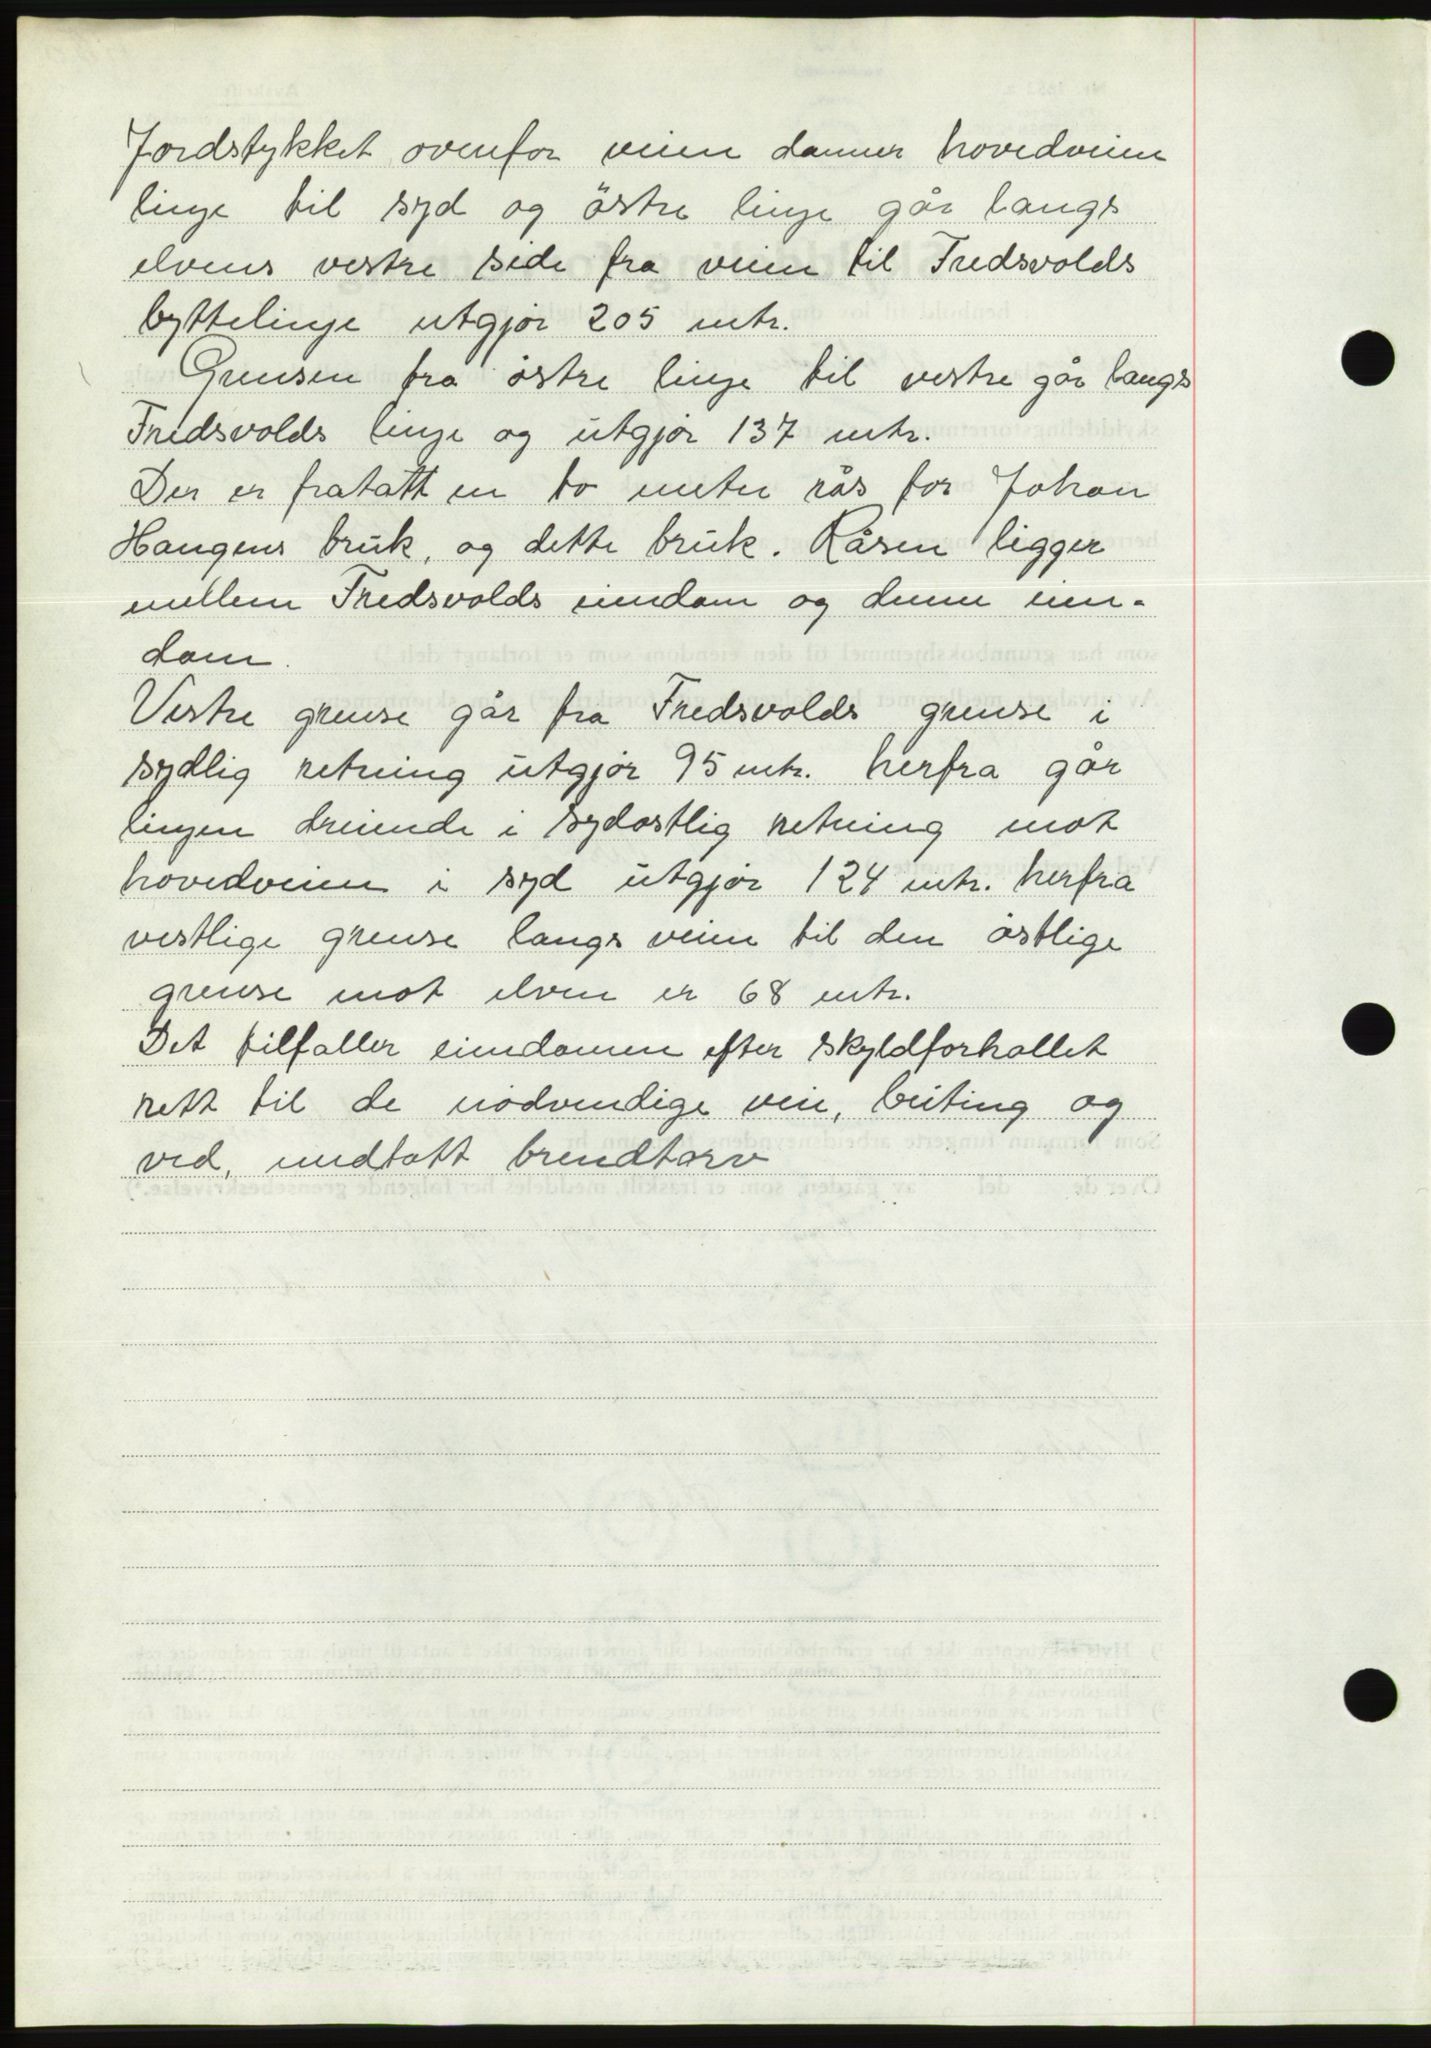 Jordstykket ovenfor veien danner hovedveien
linje til syd og östre linje går langs
elvens vestre side fra veien til Fredsvolds
byttelinje utgjør 205 mtr.
Grensen fra østre linje til vestre går langs
Fredsvolds linje og utgjør 137 mtr.
Der er fratatt en to meter rås for Johan
Haugens bruk, og dette bruk. Råsen ligger
mellem Fredsvolds eiendom og denne eien-
dom.
Vestre grense går fra Fredsvolds grense i
sydlig retning utgjør 95 mtr. herfra går
linjen dreiende i sydøstlig retning mot
hovedveien i syd utgjør 124 mtr. herfra
vestlige grense langs veien til den østlige
grense mot elven er 68 mtr.
Det tilfaller eiendomen efter skyldforhollet
rett til de nødvendige vei, beiting og
ved, undtatt brendtorv